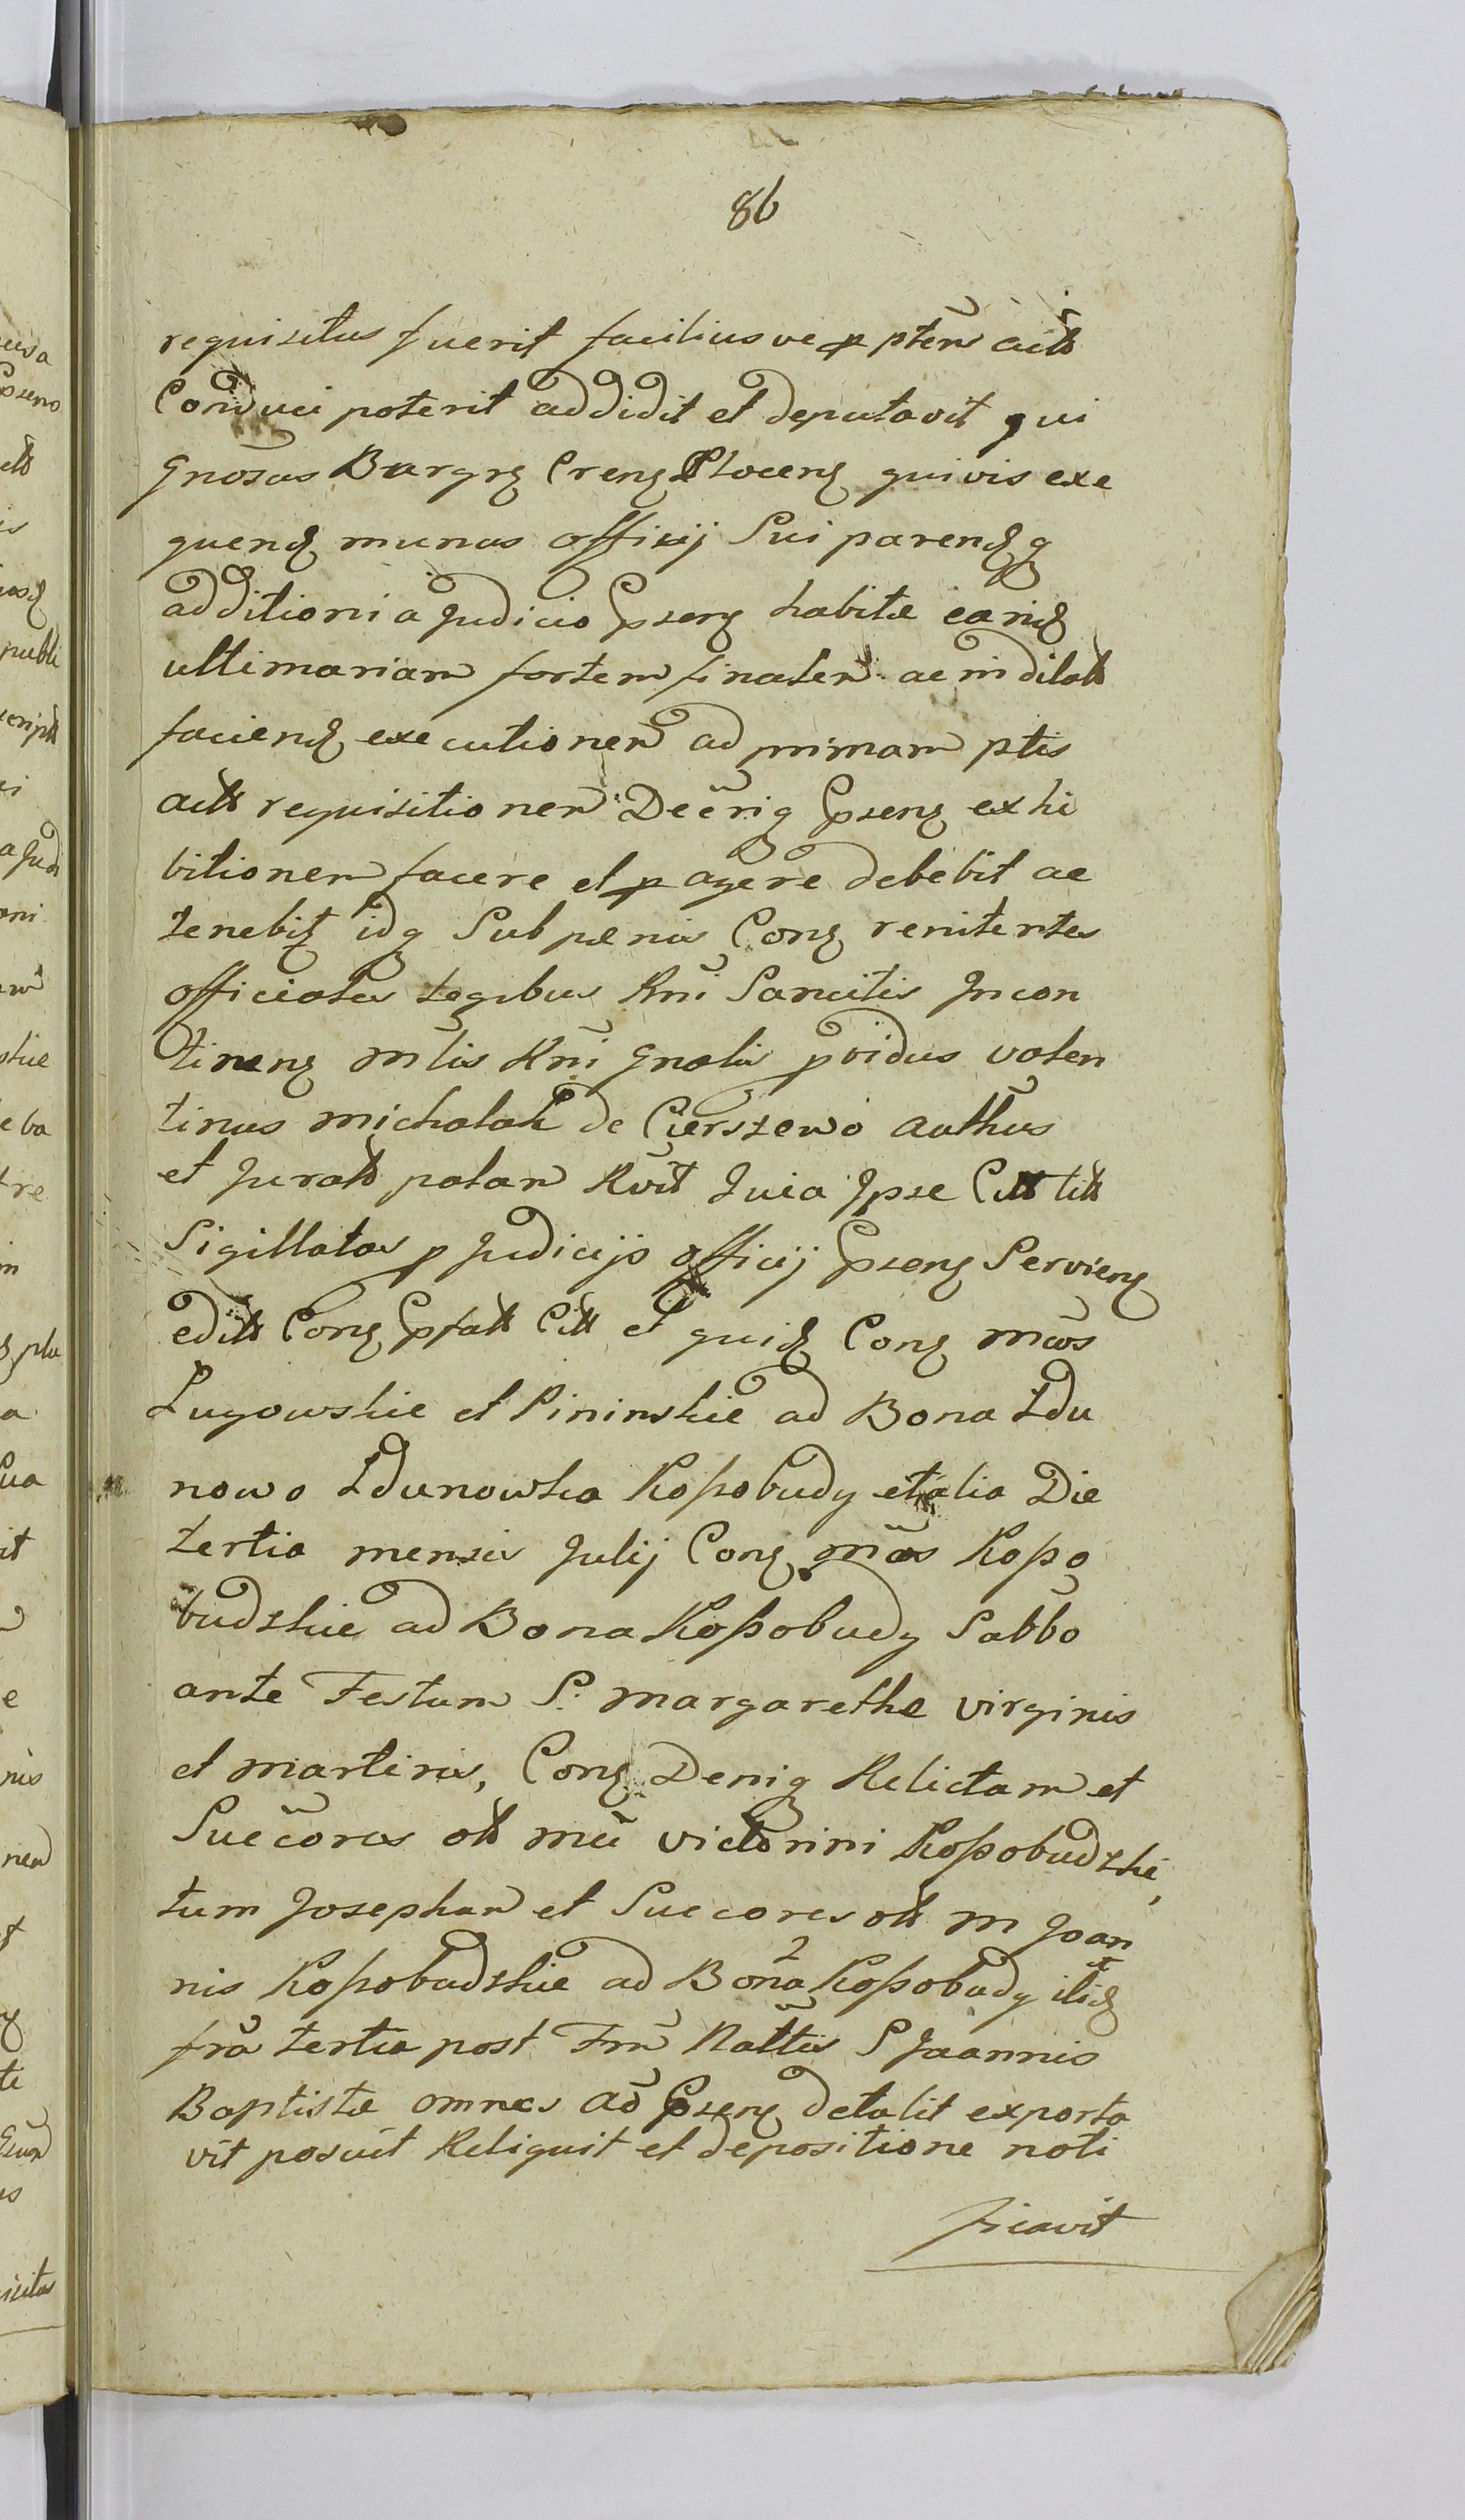 86
requisitus fuerit faciliusve p ptem actt
Conduci poterit addidit et deputavit qui
Gnosus Burgrg Creng Ploceng quivis exe
quendg munus officij Sui parendg q
additioni a Judicio Gpseng habitæ eandg
ultimariam fortem finalem ac indilatt
faciendg executionem ad primam ptis
actt requisitionem Decrig Gpseng exhi
bitionem facere et p agere debebit ac
tenebitg idq Sub pænis Cong renitentes
officiales legibus Rni Sancitis Incon
tineng mlis Rni Gnalis pvidus valen
tinus michalak de Cierszewo authus
et Juratt palam Rvit Quia Ipse Citt litt
Sigillatas p Judicijs officij Gpseng Servieng
editt Cong Gpfatt Citt et quidg Cong mcos
Lugowskie et Pininskie ad Bona Zdu
nowo Zdunowka Koßobudy et alia Die
tertia mensis Julij Cong mcos Koßo
budzkie ad Bona Koßobudy Sabbo
ante Festum S. Margarethæ virginis
et martiris, Cong Denig Relictam et
Succores ott mci victorini Koßobudzki,
tum Josepham et Succores ott M Joan
nis Koßobudzkie ad Bona 2 Koßobudy itidg
fra tertia post Fm Nattis S Joannis
Baptistæ omnes ad Gpseng detulit exporta
vit posuit Reliquit et depositione noti
ficavit